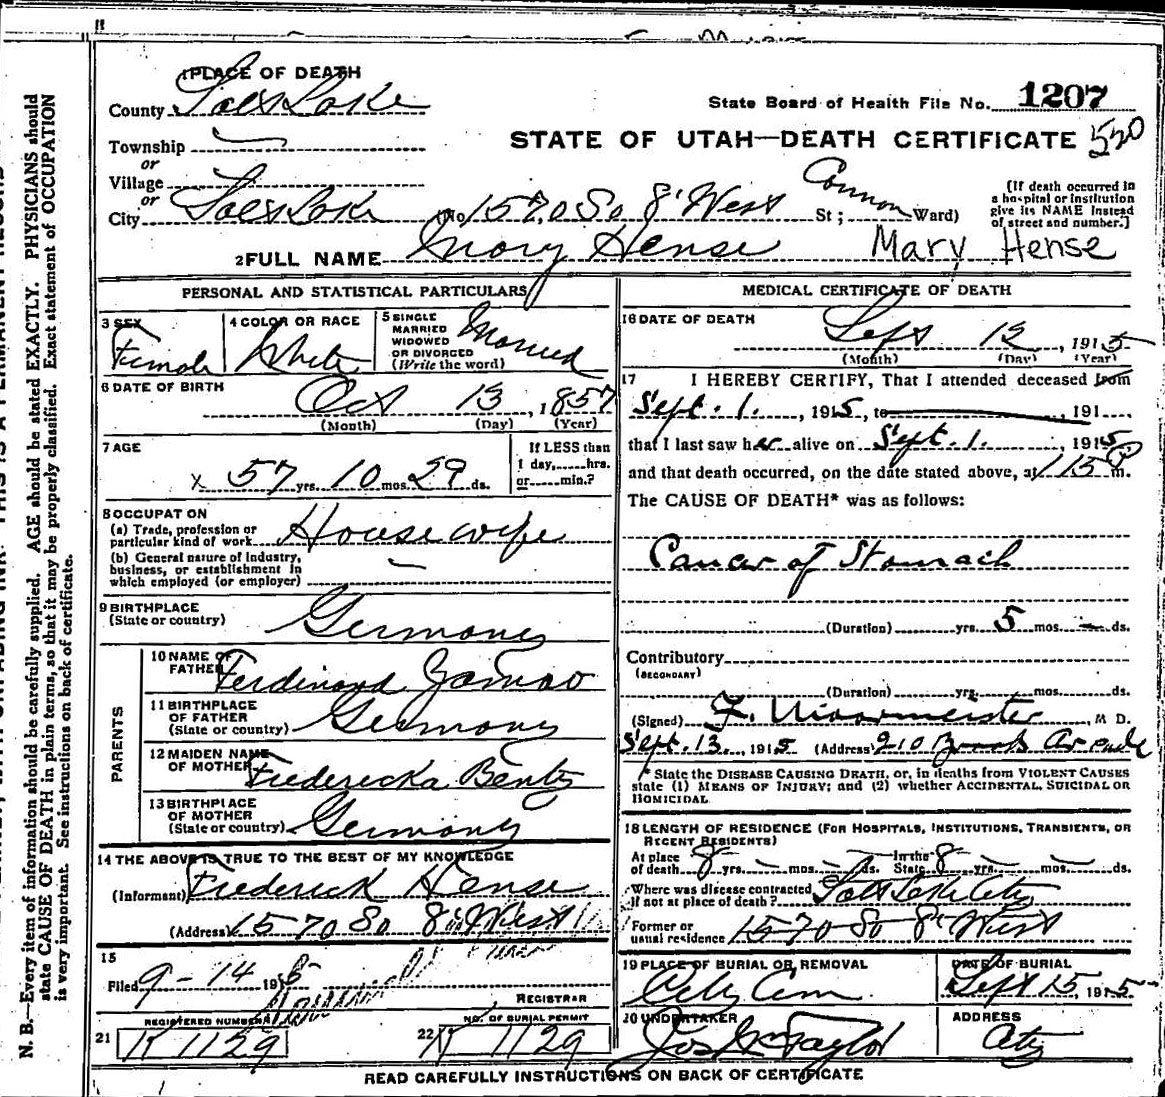 PLACE OF DEATH
County Salt Lake
State Board of Health File No. 1207
Township
STATE OF UTAH—DEATH CERTIFICATE 520
or
Village
or
City Salt Lake (No 1570 So 8' West St; Ward)
[If death occurred in
a hospital or institution
give its NAME instead
of street and number.]
2 FULL NAME Mary Hense Mary Hense
PERSONAL AND STATISTICAL PARTICULARS
3 SEX
Female
4 COLOR OR RACE
White
5 SINGLE
MARRIED
WIDOWED
OR DIVORCED
(Write the word)
Married
6 DATE OF BIRTH
Oct 13, 1857
(Month) (Day) (Year)
7 AGE
57 yrs. 10 mos. 29 ds.
If LESS than
1 day,......hrs.
or......min.?
8 OCCUPATION
(a) Trade, profession or
particular kind of work Housewife
(b) General nature of industry,
business, or establishment in
which employed (or employer)
9 BIRTHPLACE
(State or country) Germany
PARENTS
10 NAME OF
FATHER Ferdinand
11 BIRTHPLACE
OF FATHER
(State or country) Germany
12 MAIDEN NAME
OF MOTHER Fredericka Bentz
13 BIRTHPLACE
OF MOTHER
(State or country) Germany
14 THE ABOVE IS TRUE TO THE BEST OF MY KNOWLEDGE
(Informant) Frederick Hense
(Address) 1570 So 8" West
15
Filed 9-14 1915
REGISTRAR
REGISTERED NUMBER
21 K 1129
NO. OF BURIAL PERMIT
22 K 1129
MEDICAL CERTIFICATE OF DEATH
16 DATE OF DEATH
Sept 12, 1915
(Month) (Day) (Year)
17 I HEREBY CERTIFY, That I attended deceased from
Sept. 1., 1915, to , 191
that I last saw her alive on Sept. 1. 1915
and that death occurred, on the date stated above, at 115 P m.
The CAUSE OF DEATH* was as follows:
Cancer of Stomach
(Duration) yrs. 5 mos. – ds.
Contributory
(SECONDARY)
(Duration) yrs. mos. ds.
(Signed) F. , M D.
Sept. 13., 1915 (Address) 210 Arcade
* State the DISEASE CAUSING DEATH, or, in deaths from VIOLENT CAUSES
state (1) MEANS OF INJURY; and (2) whether ACCIDENTAL, SUICIDAL OR
HOMICIDAL
18 LENGTH OF RESIDENCE (FOR HOSPITALS, INSTITUTIONS, TRANSIENTS, OR
RECENT RESIDENTS)
At place
of death 8 yrs. – mos. – ds. In the
State 8 yrs. – mos. ds.
Where was disease contracted
If not at place of death? Salt Lake City
Former or
usual residence 1570 So 8' West
19 PLACE OF BURIAL OR REMOVAL
City Cem
DATE OF BURIAL
Sept 15, 1915
20 UNDERTAKER
Jos Wm Taylor
ADDRESS
City
READ CAREFULLY INSTRUCTIONS ON BACK OF CERTIFICATE
N. B.—Every item of information should be carefully supplied. AGE should be stated EXACTLY. PHYSICIANS should
state CAUSE OF DEATH in plain terms, so that it may be properly classified. Exact statement of OCCUPATION
is very important. See instructions on back of certificate.